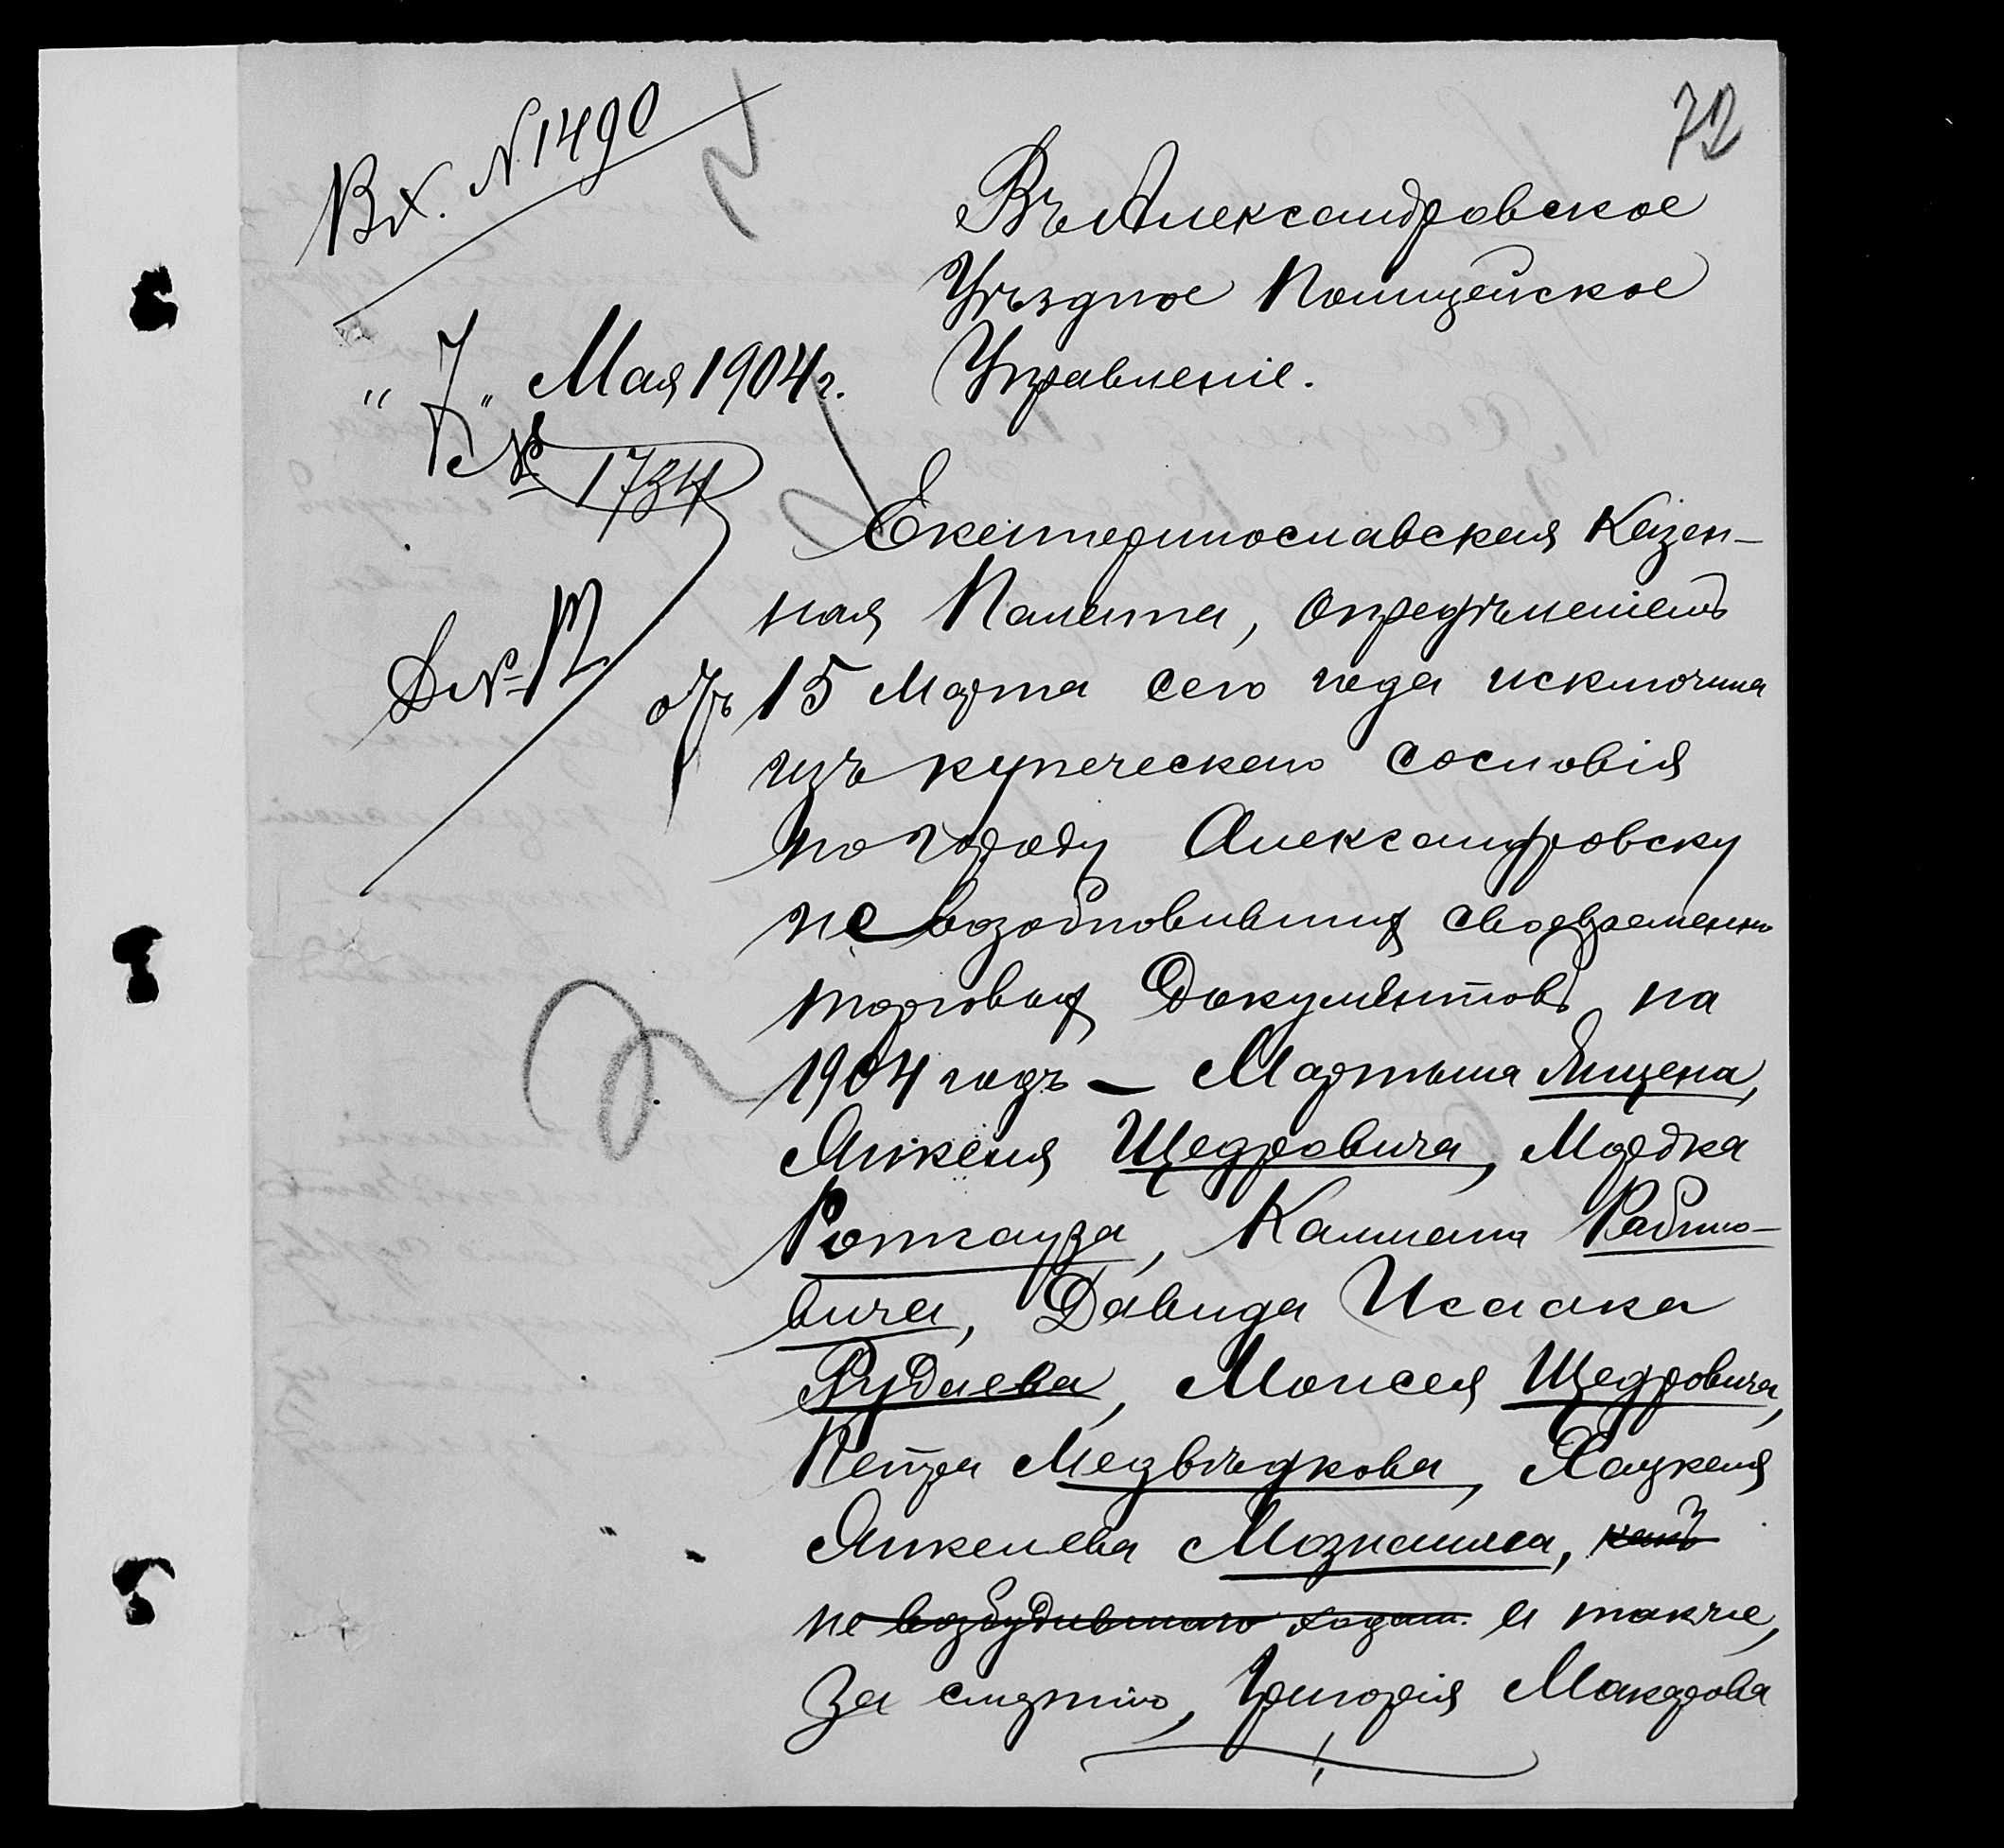 72
Вх. №1490
Въ Александровское
Уѣздное Полицейское
Управленіе.
"7" Мая 1904 г.
№ 1734
Екатеринославская Казен-
ная Палата, опредѣленіемъ
отъ 15 Марта сего года исключила
изъ купеческаго сословія
по городу Александровску
не возобновившихъ своевременно
торговыхъ документовъ на
1904 годъ — Мартына
Янкеля Щедровича, Мордка
Ротгауза, Калмана Рабино-
вича, Давида Исаака
Рудаева, Моисея Щедровича,
Петра Медвѣдкова, Хацкеля
Янкелева
не возбудившаго ходат. и также,
за смертію, Григорія Макарова